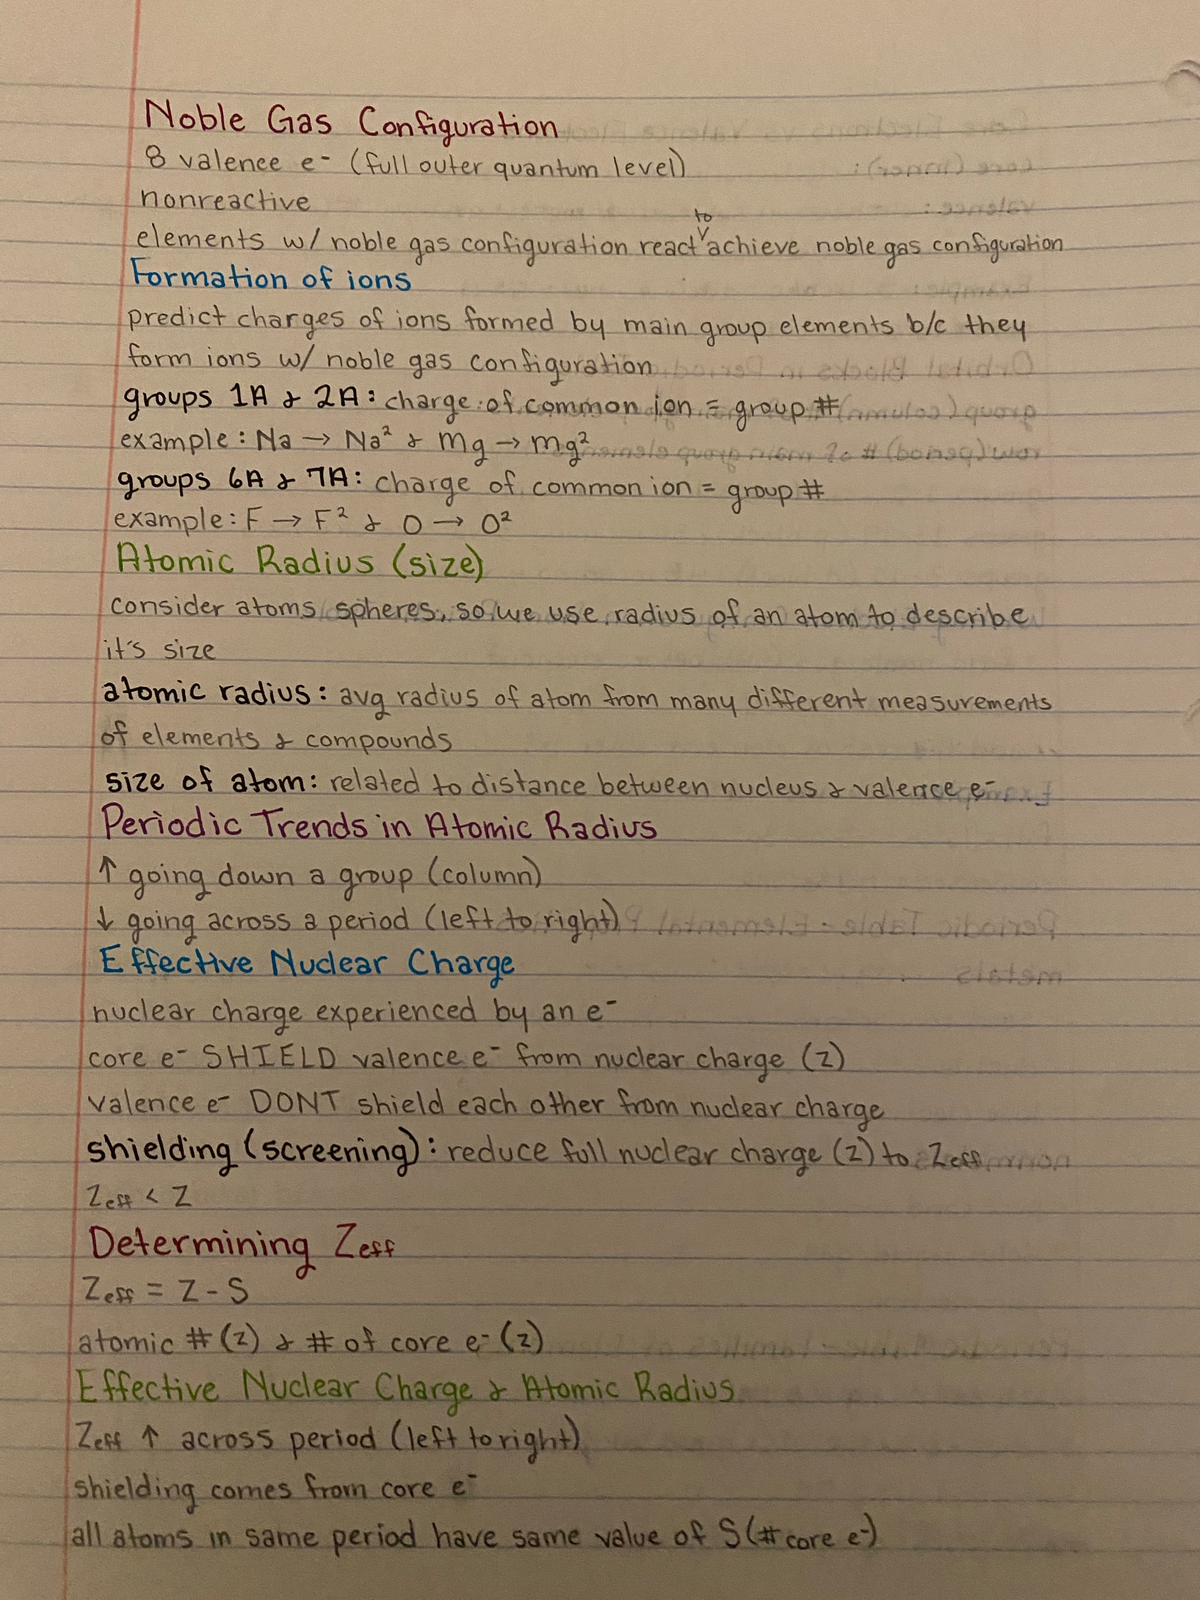 Noble Gas Configuration
8 valence e⁻ (full outer quantum level)
nonreactive
elements w/ noble gas configuration react to achieve noble gas configuration
Formation of ions
predict charges of ions formed by main group elements b/c they
form ions w/ noble gas configuration
groups 1A & 2A: charge of common ion = group #
example: Na → Na² & Mg → Mg²
groups 6A & 7A: charge of common ion = group #
example: F → F² & O → O²
Atomic Radius (size)
consider atoms spheres, so we use radius of an atom to describe
it's size
atomic radius: avg radius of atom from many different measurements
of elements & compounds
size of atom: related to distance between nucleus & valence e⁻
Periodic Trends in Atomic Radius
↑ going down a group (column)
↓ going across a period (left to right)
Effective Nuclear Charge
nuclear charge experienced by an e⁻
core e⁻ SHIELD valence e⁻ from nuclear charge (Z)
valence e⁻ DONT shield each other from nuclear charge
shielding (screening): reduce full nuclear charge (Z) to Zeff
Zeff < Z
Determining Zeff
Zeff = Z - S
atomic # (Z) & # of core e⁻ (Z)
Effective Nuclear Charge & Atomic Radius
Zeff ↑ across period (left to right)
shielding comes from core e⁻
all atoms in same period have same value of S (# core e⁻)